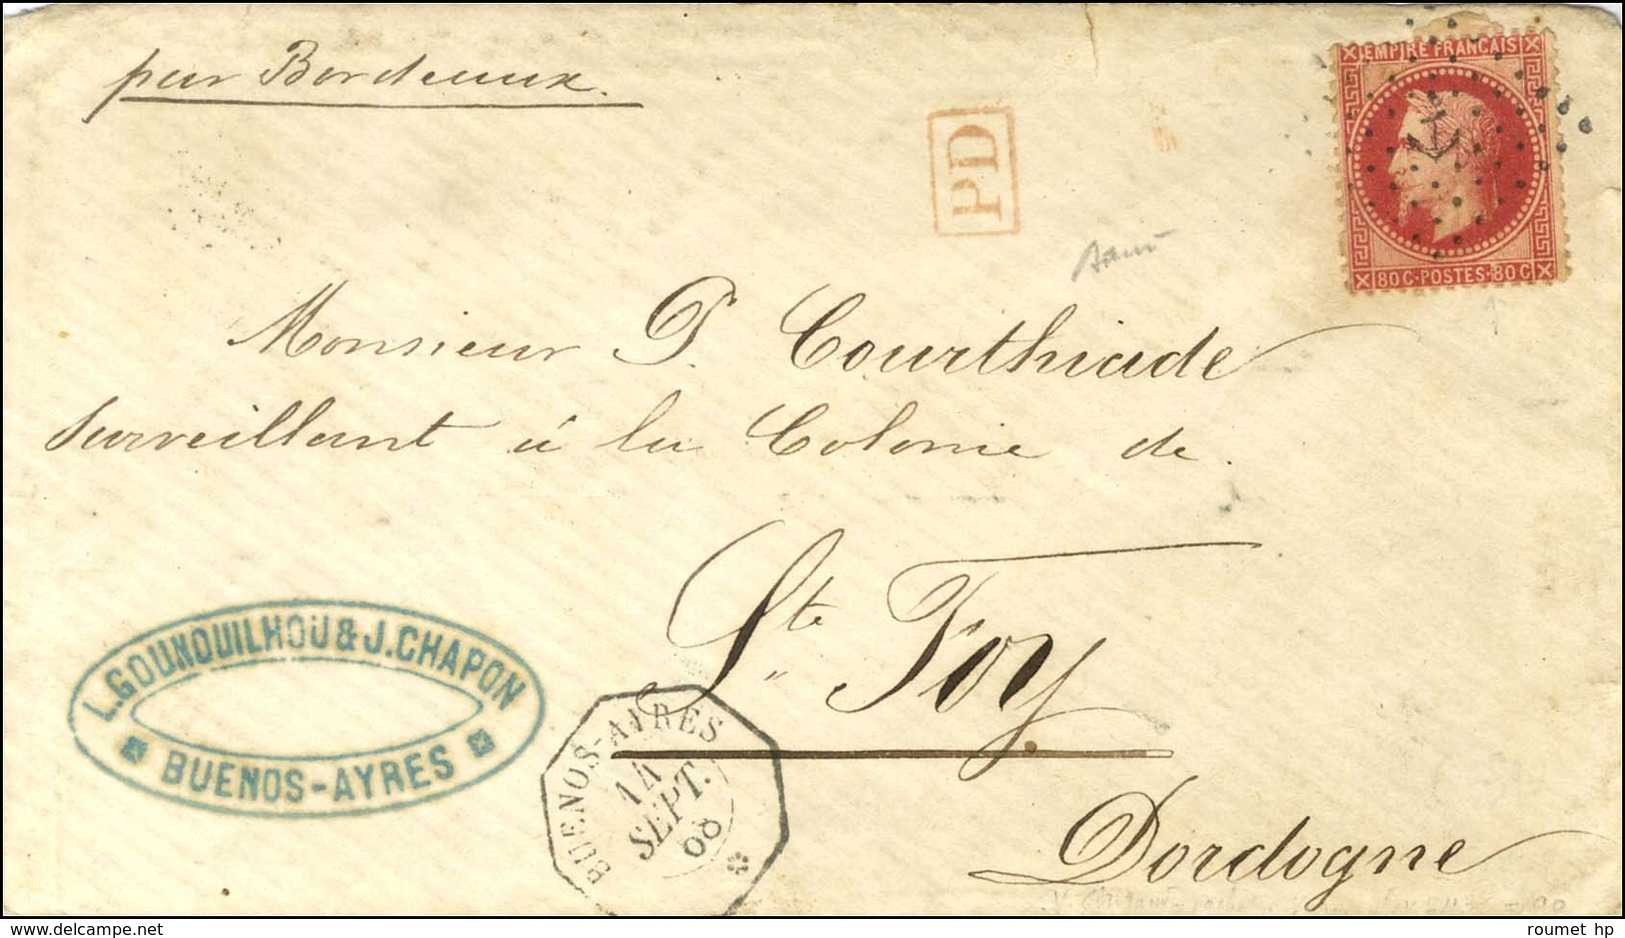 par Bordeaux.
EMPIRE FRANÇAIS
80 C·POSTES·80 C
PD
Monsieur P. Courthiade
Surveillant à la Colonie de
Ste Foy
Dordogne
L. GOUNOUILHOU & J. CHAPON
BUENOS-AYRES
BUENOS-AYRES
14
SEPT.
68
delcampe.net
roumet hp